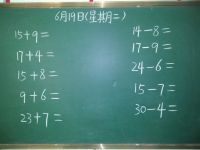 6月19日(星期二)
15+9=
17+4=
15+8=
9+6=
23+7=
14-8=
17-9=
24-6=
15-7=
30-4=